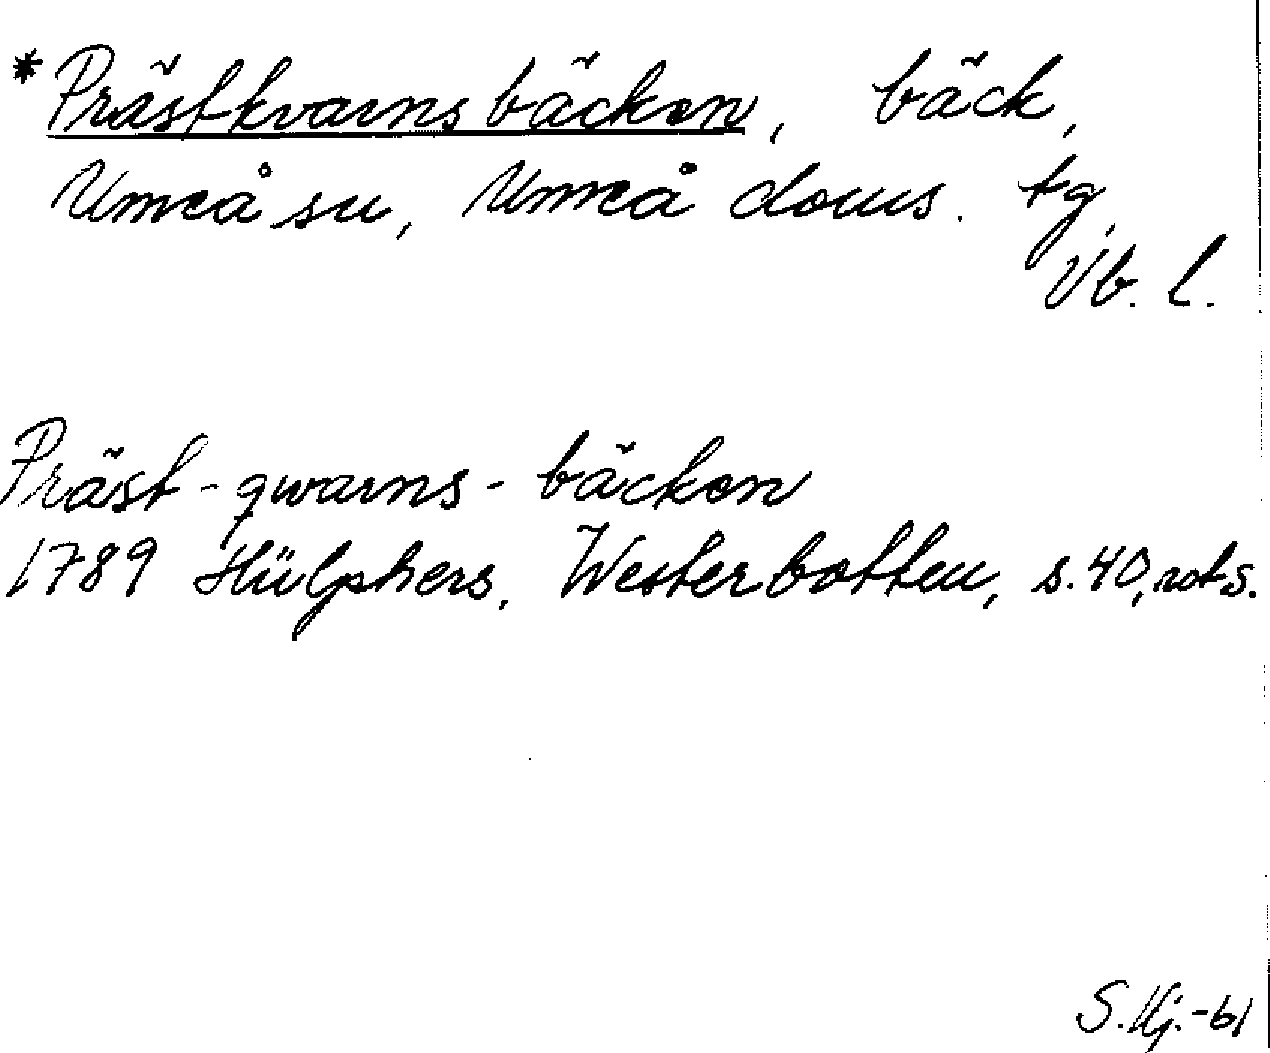 *Prästkvarnsbäcken, bäck,
Umeå sn, Umeå doms. tg,
Vb. l.
Präst-qwarns-bäcken
1789 Hülphers, Westerbotten, s. 40, not s.
S. Hj.-61